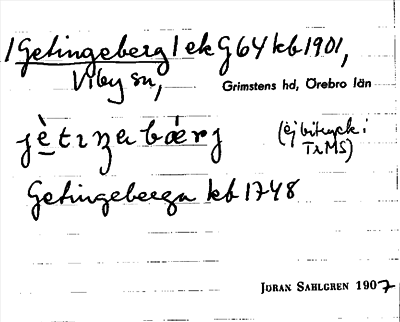 /Getingeberg/ ek G64 kb 1901,
Viby sn,
Grimstens hd, Örebro län
jètıŋabǽrj
(ej bitryck i
TrMS)
Getingeberga kb 1748
JÖRAN SAHLGREN 1907